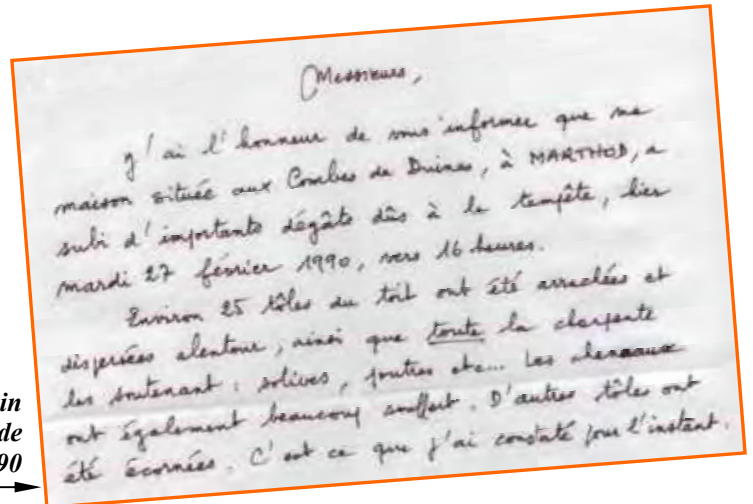 Messieurs,
J'ai l'honneur de vous informer que ma
maison située aux Combes de Duines, à MARTHOD, a
subi d'importants dégâts dûs à la tempête, hier
mardi 27 février 1990, vers 16 heures.
Environ 25 tôles du toit ont été arrachées et
dispersées alentour, ainsi que toute la charpente
les soutenant : solives, poutres etc... Les chenaux
ont également beaucoup souffert. D'autres tôles ont
été écornées. C'est ce que j'ai constaté pour l'instant.
in
de
90